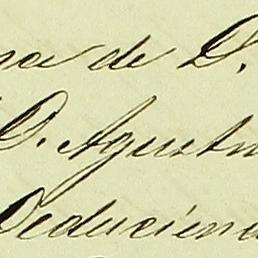 na de D.
D. Agustin
Deduciend